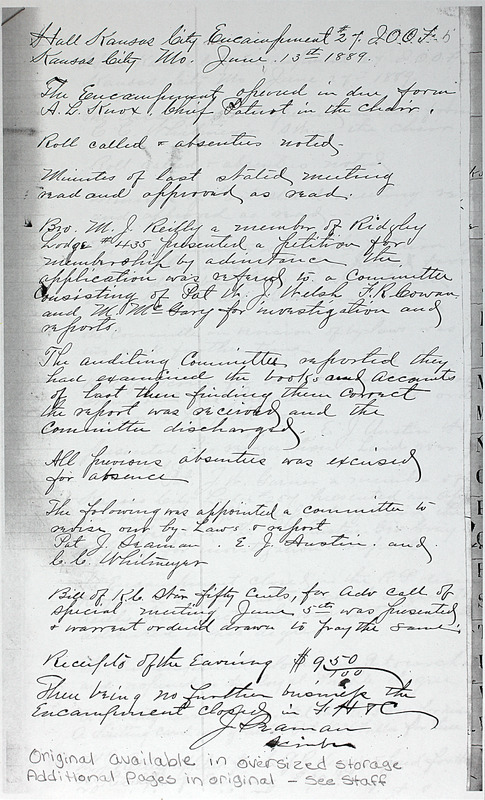 Hall Kansas City Encampment #21. I.O.O.F. 5
Kansas City Mo. June. 13th 1889.
The Encampment opened in due form
A. L. Knox, Chief Patriot in the chair.
Roll called & absenties noted.
Minutes of last stated meeting
read and approved as read.
Bro. M. J. Reilly a member of Ridgly
Lodge #435 presented a petition for
membership by admittance the
application was refered to a Committee
Consisting of Pat W. J. Welsh F. R. Cowan
and M. McGary for investigation and
reports.
The auditing Committee reported they
had examined the books and Accounts
of last then finding them Correct
the report was received and the
Committee discharged.
All previous absenties was excused
for absence
The folowing was appointed a committee to
revise our by-Laws & report
Pat J. Seaman. E. J. Austin. and
C. C. Whitmeyer
Bill of KC Star fifty Cents, for Adv call of
special meeting June 5th was presented
& warrant ordered drawn to pay the same.
Receipts of the Evening $9 50/100
There being no further business the
Encampment closed in F. H & C
J Seaman
Scribe
Original available in oversized storage
Additional Pages in original - See Staff